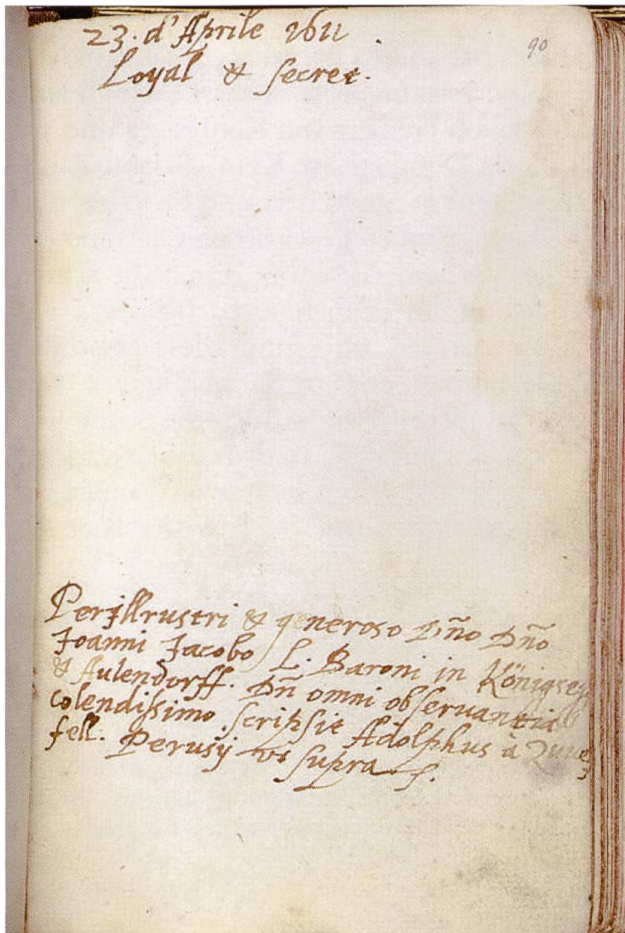 23. d'Aprile 1611.
90
Loyal & secret.
Perillrustri & generoso Dn̄o Dn̄o
Joanni Jacobo L. Baroni in Königsegg
& Aulendorff. Dn̄ omni observantia
colendißimo scripsit Adolphus à
fell. Perusij vt supra